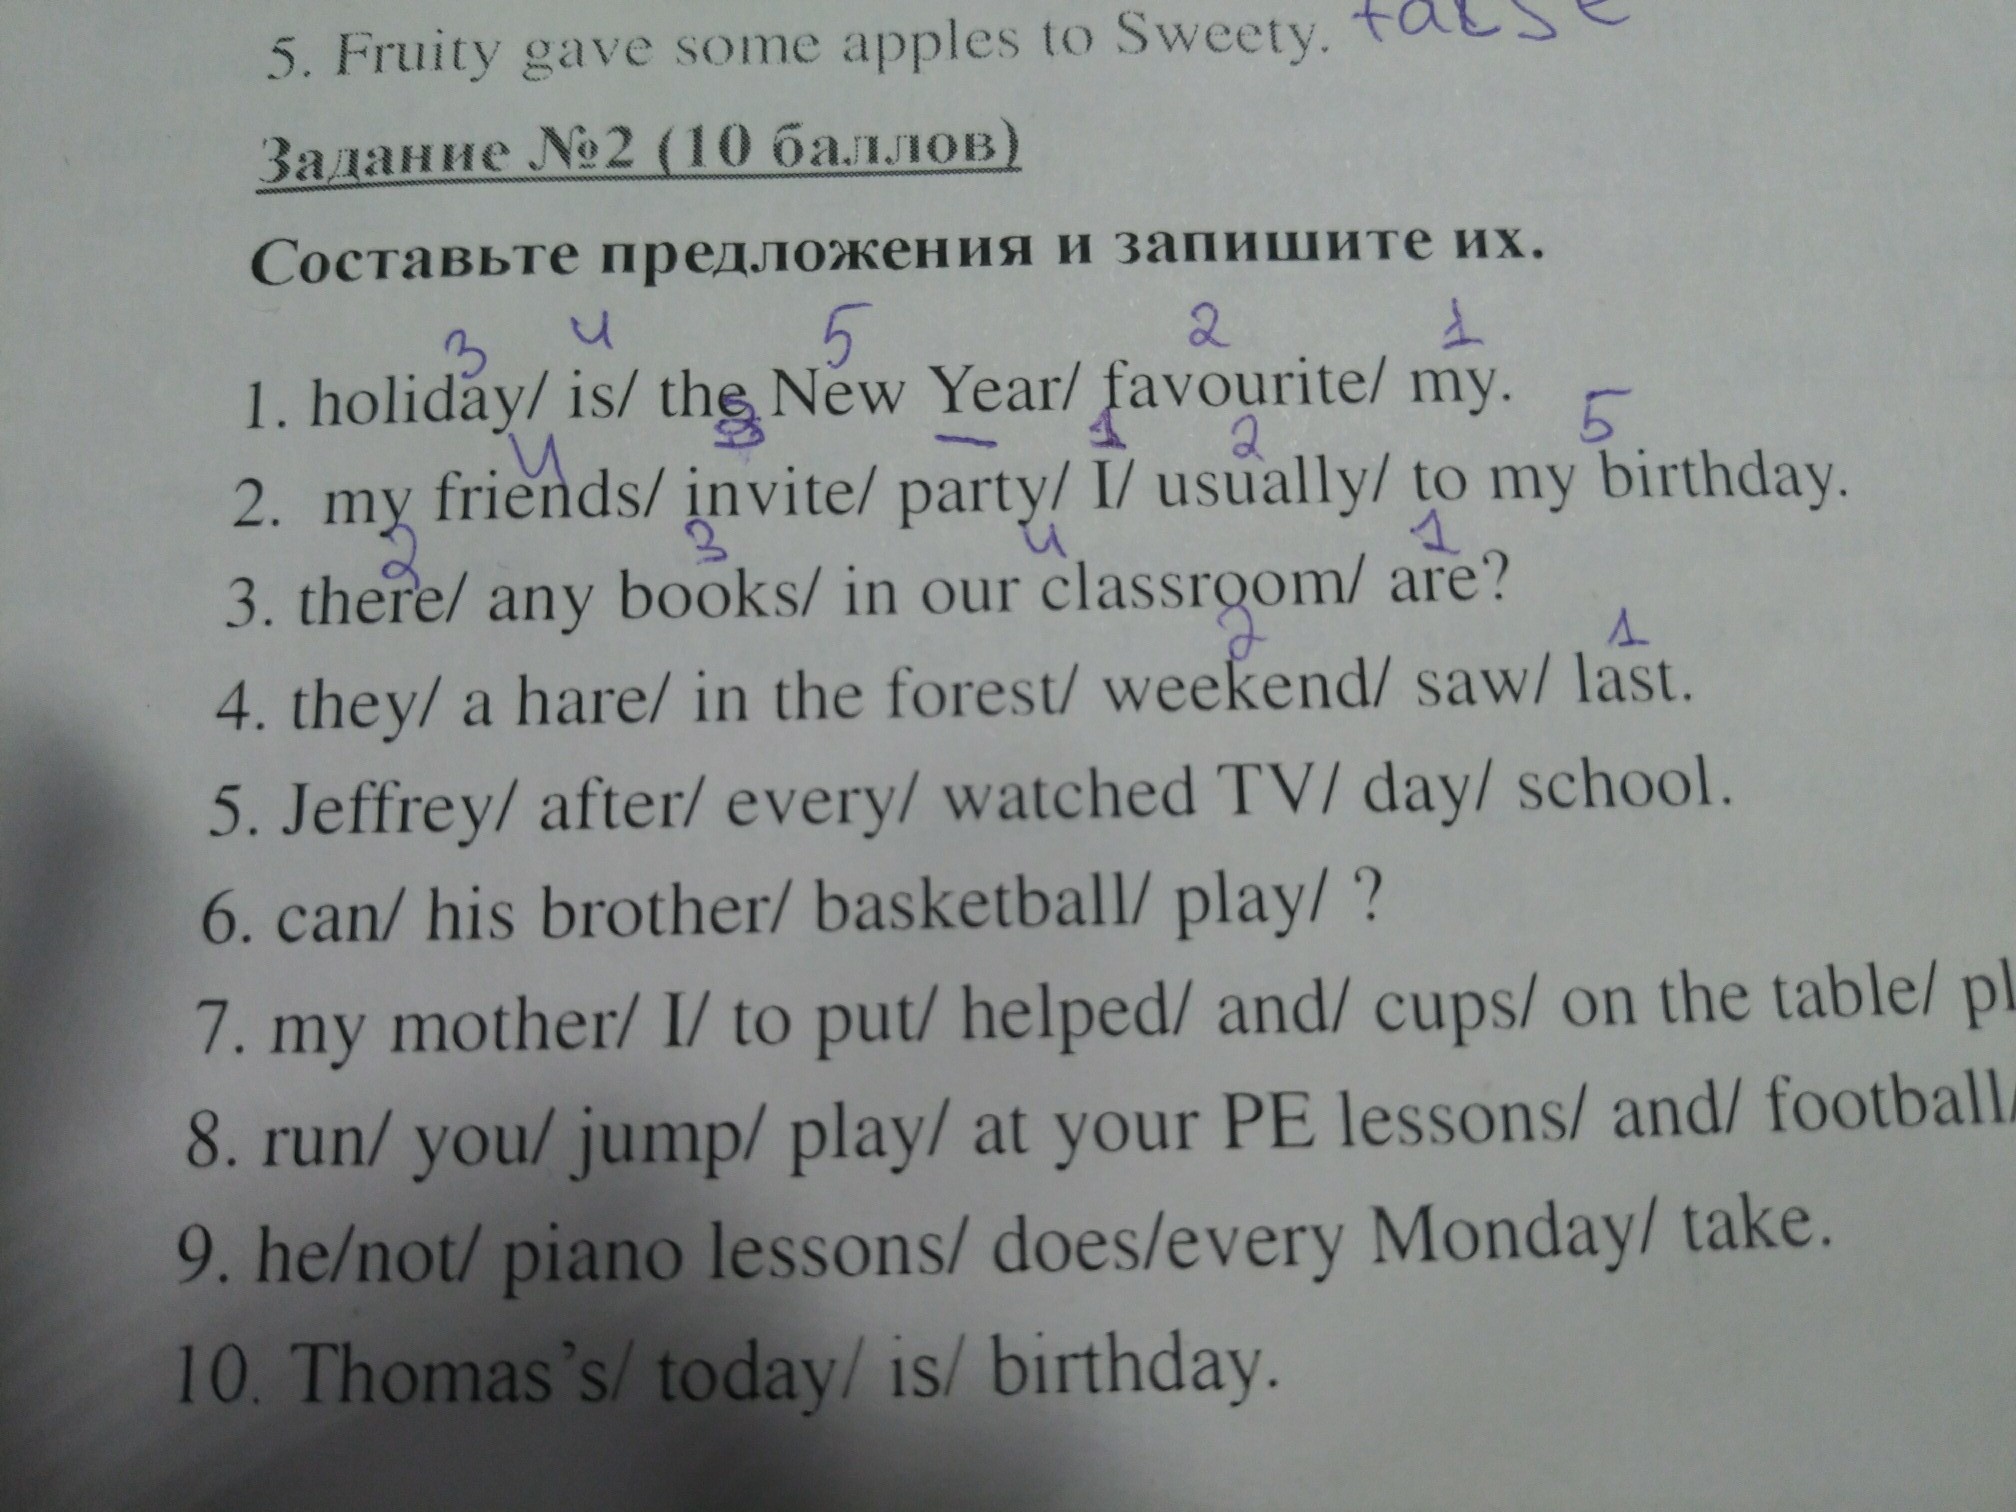 5. Fruity gave some apples to Sweety. false
Задание №2 (10 баллов)
Составьте предложения и запишите их.
3 4 5 2 1
1. holiday/ is/ the New Year/ favourite/ my.
4 3 1 2 5
2. my friends/ invite/ party/ I/ usually/ to my birthday.
2 3 4 1
3. there/ any books/ in our classroom/ are?
2 1
4. they/ a hare/ in the forest/ weekend/ saw/ last.
5. Jeffrey/ after/ every/ watched TV/ day/ school.
6. can/ his brother/ basketball/ play/ ?
7. my mother/ I/ to put/ helped/ and/ cups/ on the table/ pl
8. run/ you/ jump/ play/ at your PE lessons/ and/ football/
9. he/not/ piano lessons/ does/every Monday/ take.
10. Thomas's/ today/ is/ birthday.